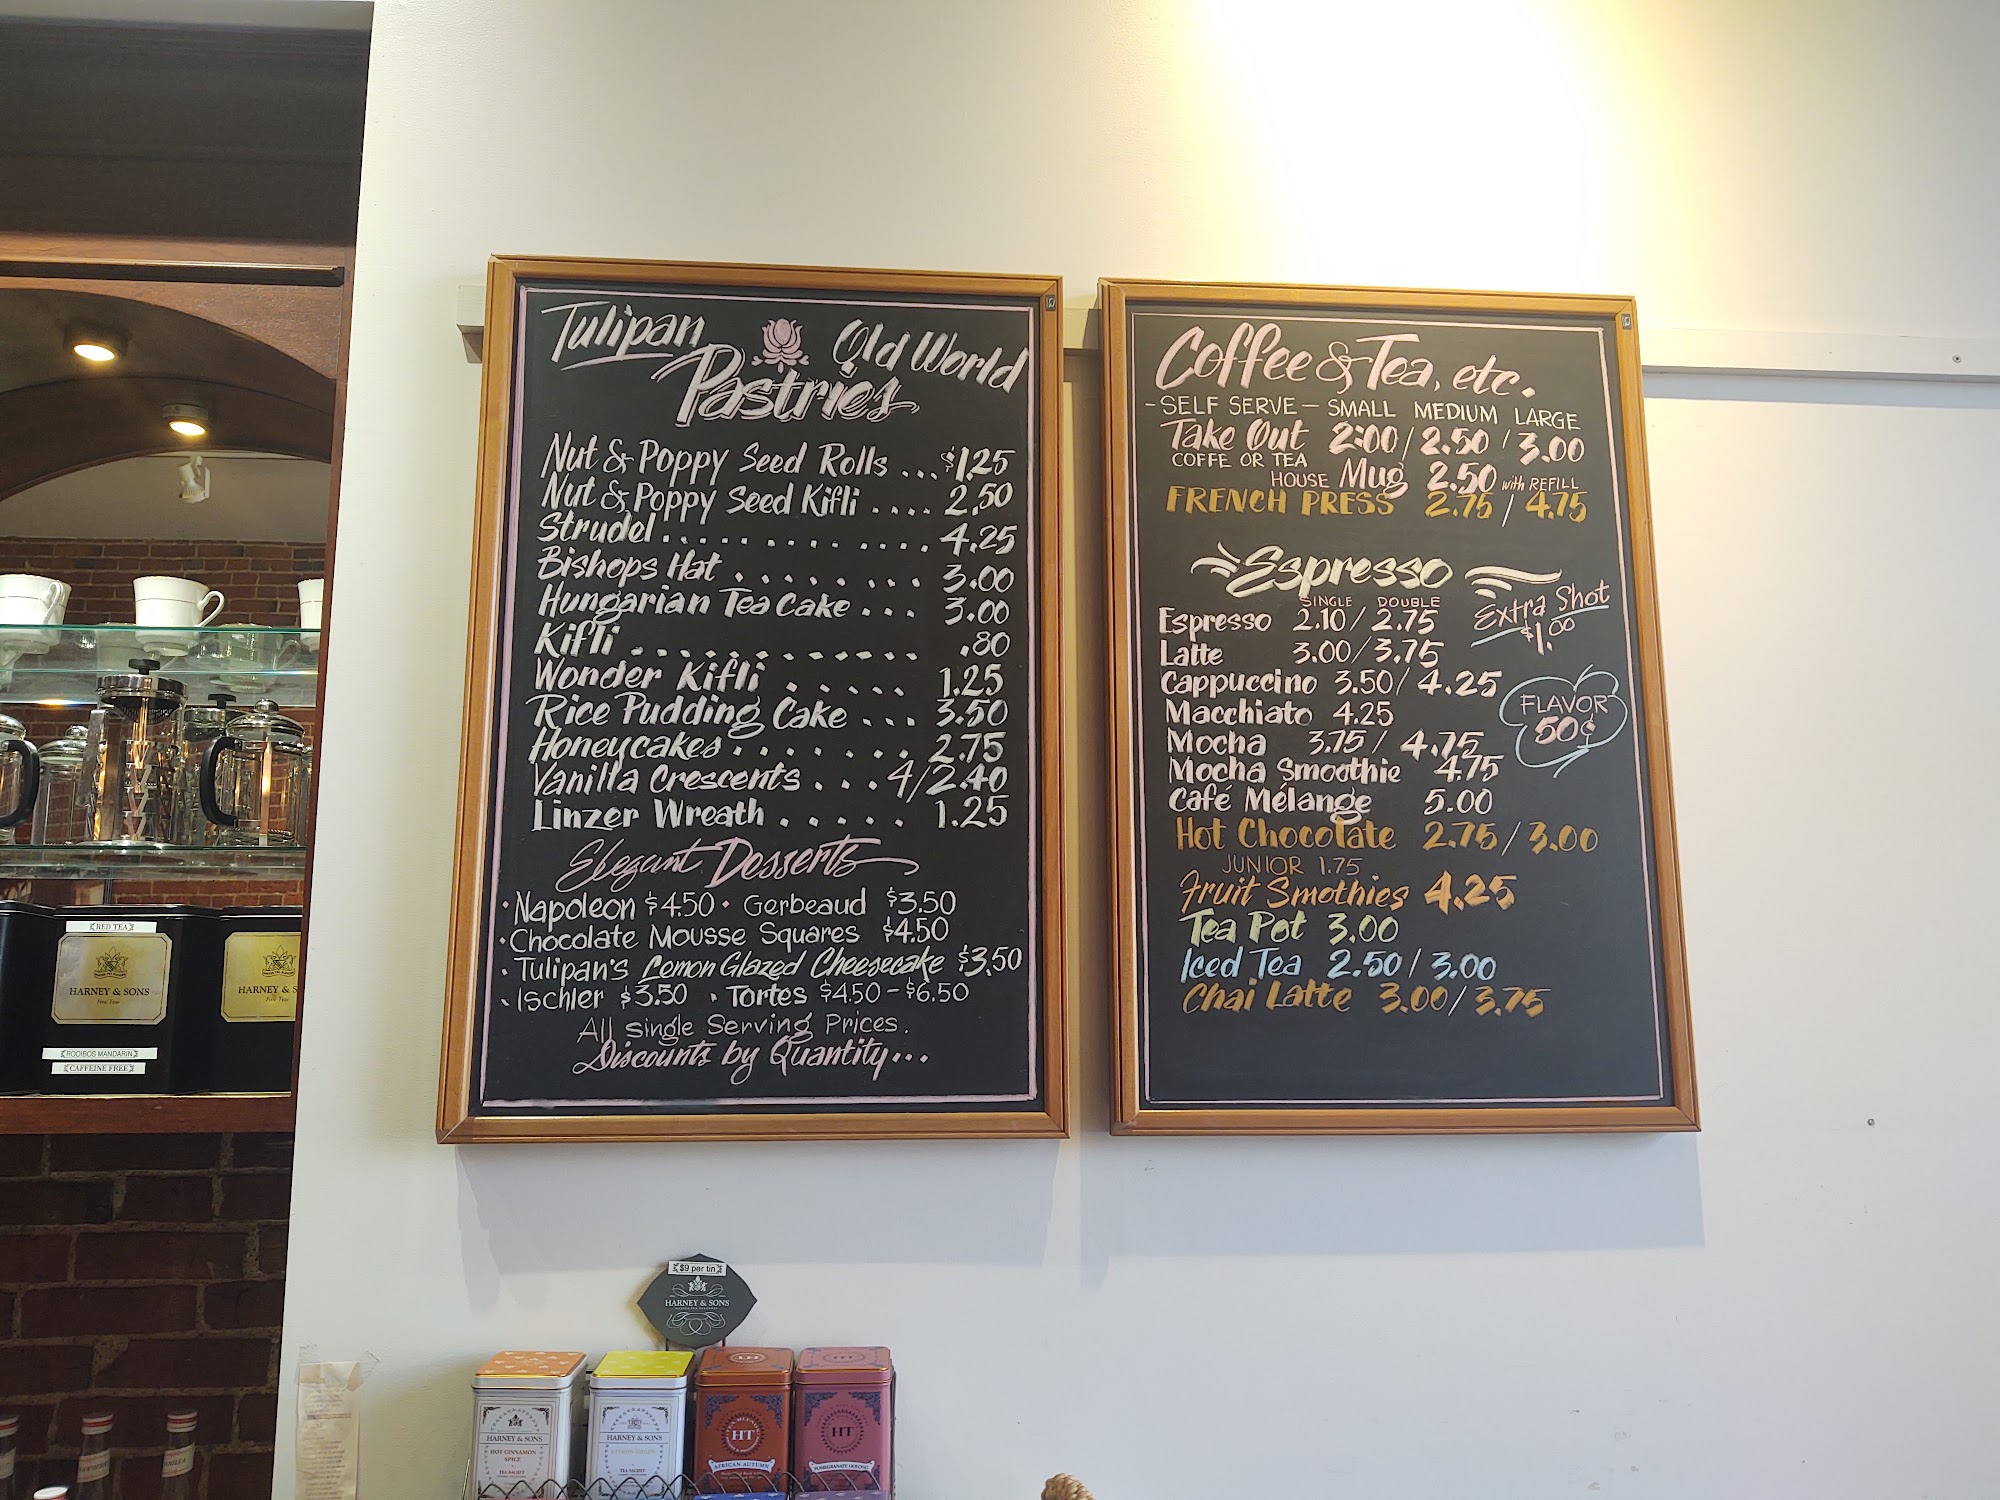 Tulipan Old World
Pastries
Nut & Poppy Seed Rolls ... $1.25
Nut & Poppy Seed Kifli .... 2.50
Strudel ........... 4.25
Bishops Hat ....... 3.00
Hungarian Tea Cake ... 3.00
Kifli .......... .80
Wonder Kifli ..... 1.25
Rice Pudding Cake ... 3.50
Honeycakes ....... 2.75
Vanilla Crescents ... 4/2.40
Linzer Wreath ..... 1.25
Elegant Desserts
• Napoleon $4.50 • Gerbeaud $3.50
• Chocolate Mousse Squares $4.50
• Tulipan's Lemon Glazed Cheesecake $3.50
• Ischler $3.50 • Tortes $4.50 - $6.50
All single Serving Prices.
Discounts by Quantity...
Coffee & Tea, etc.
- SELF SERVE - SMALL MEDIUM LARGE
Take Out 2:00 / 2.50 / 3.00
COFFE OR TEA
HOUSE Mug 2.50 with REFILL
FRENCH PRESS 2.75 / 4.75
Espresso
SINGLE DOUBLE
Espresso 2.10 / 2.75
Extra Shot
$1.00
Latte 3.00 / 3.75
Cappuccino 3.50 / 4.25
Macchiato 4.25
FLAVOR
50¢
Mocha 3.75 / 4.75
Mocha Smoothie 4.75
Café Mélange 5.00
Hot Chocolate 2.75 / 3.00
JUNIOR 1.75
Fruit Smothies 4.25
Tea Pot 3.00
Iced Tea 2.50 / 3.00
Chai Latte 3.00 / 3.75
RED TEA
HARNEY & SONS
Fine Teas
ROOIBOS MANDARIN
CAFFEINE FREE
HARNEY & S
Fine Teas
$9 per tin
HARNEY & SONS
HARNEY & SONS
HOT CINNAMON
SPICE
TEA SACHET
HARNEY & SONS
TEA SACHET
HT
AFRICAN AUTUMN
HT
POMEGRANATE OOLONG